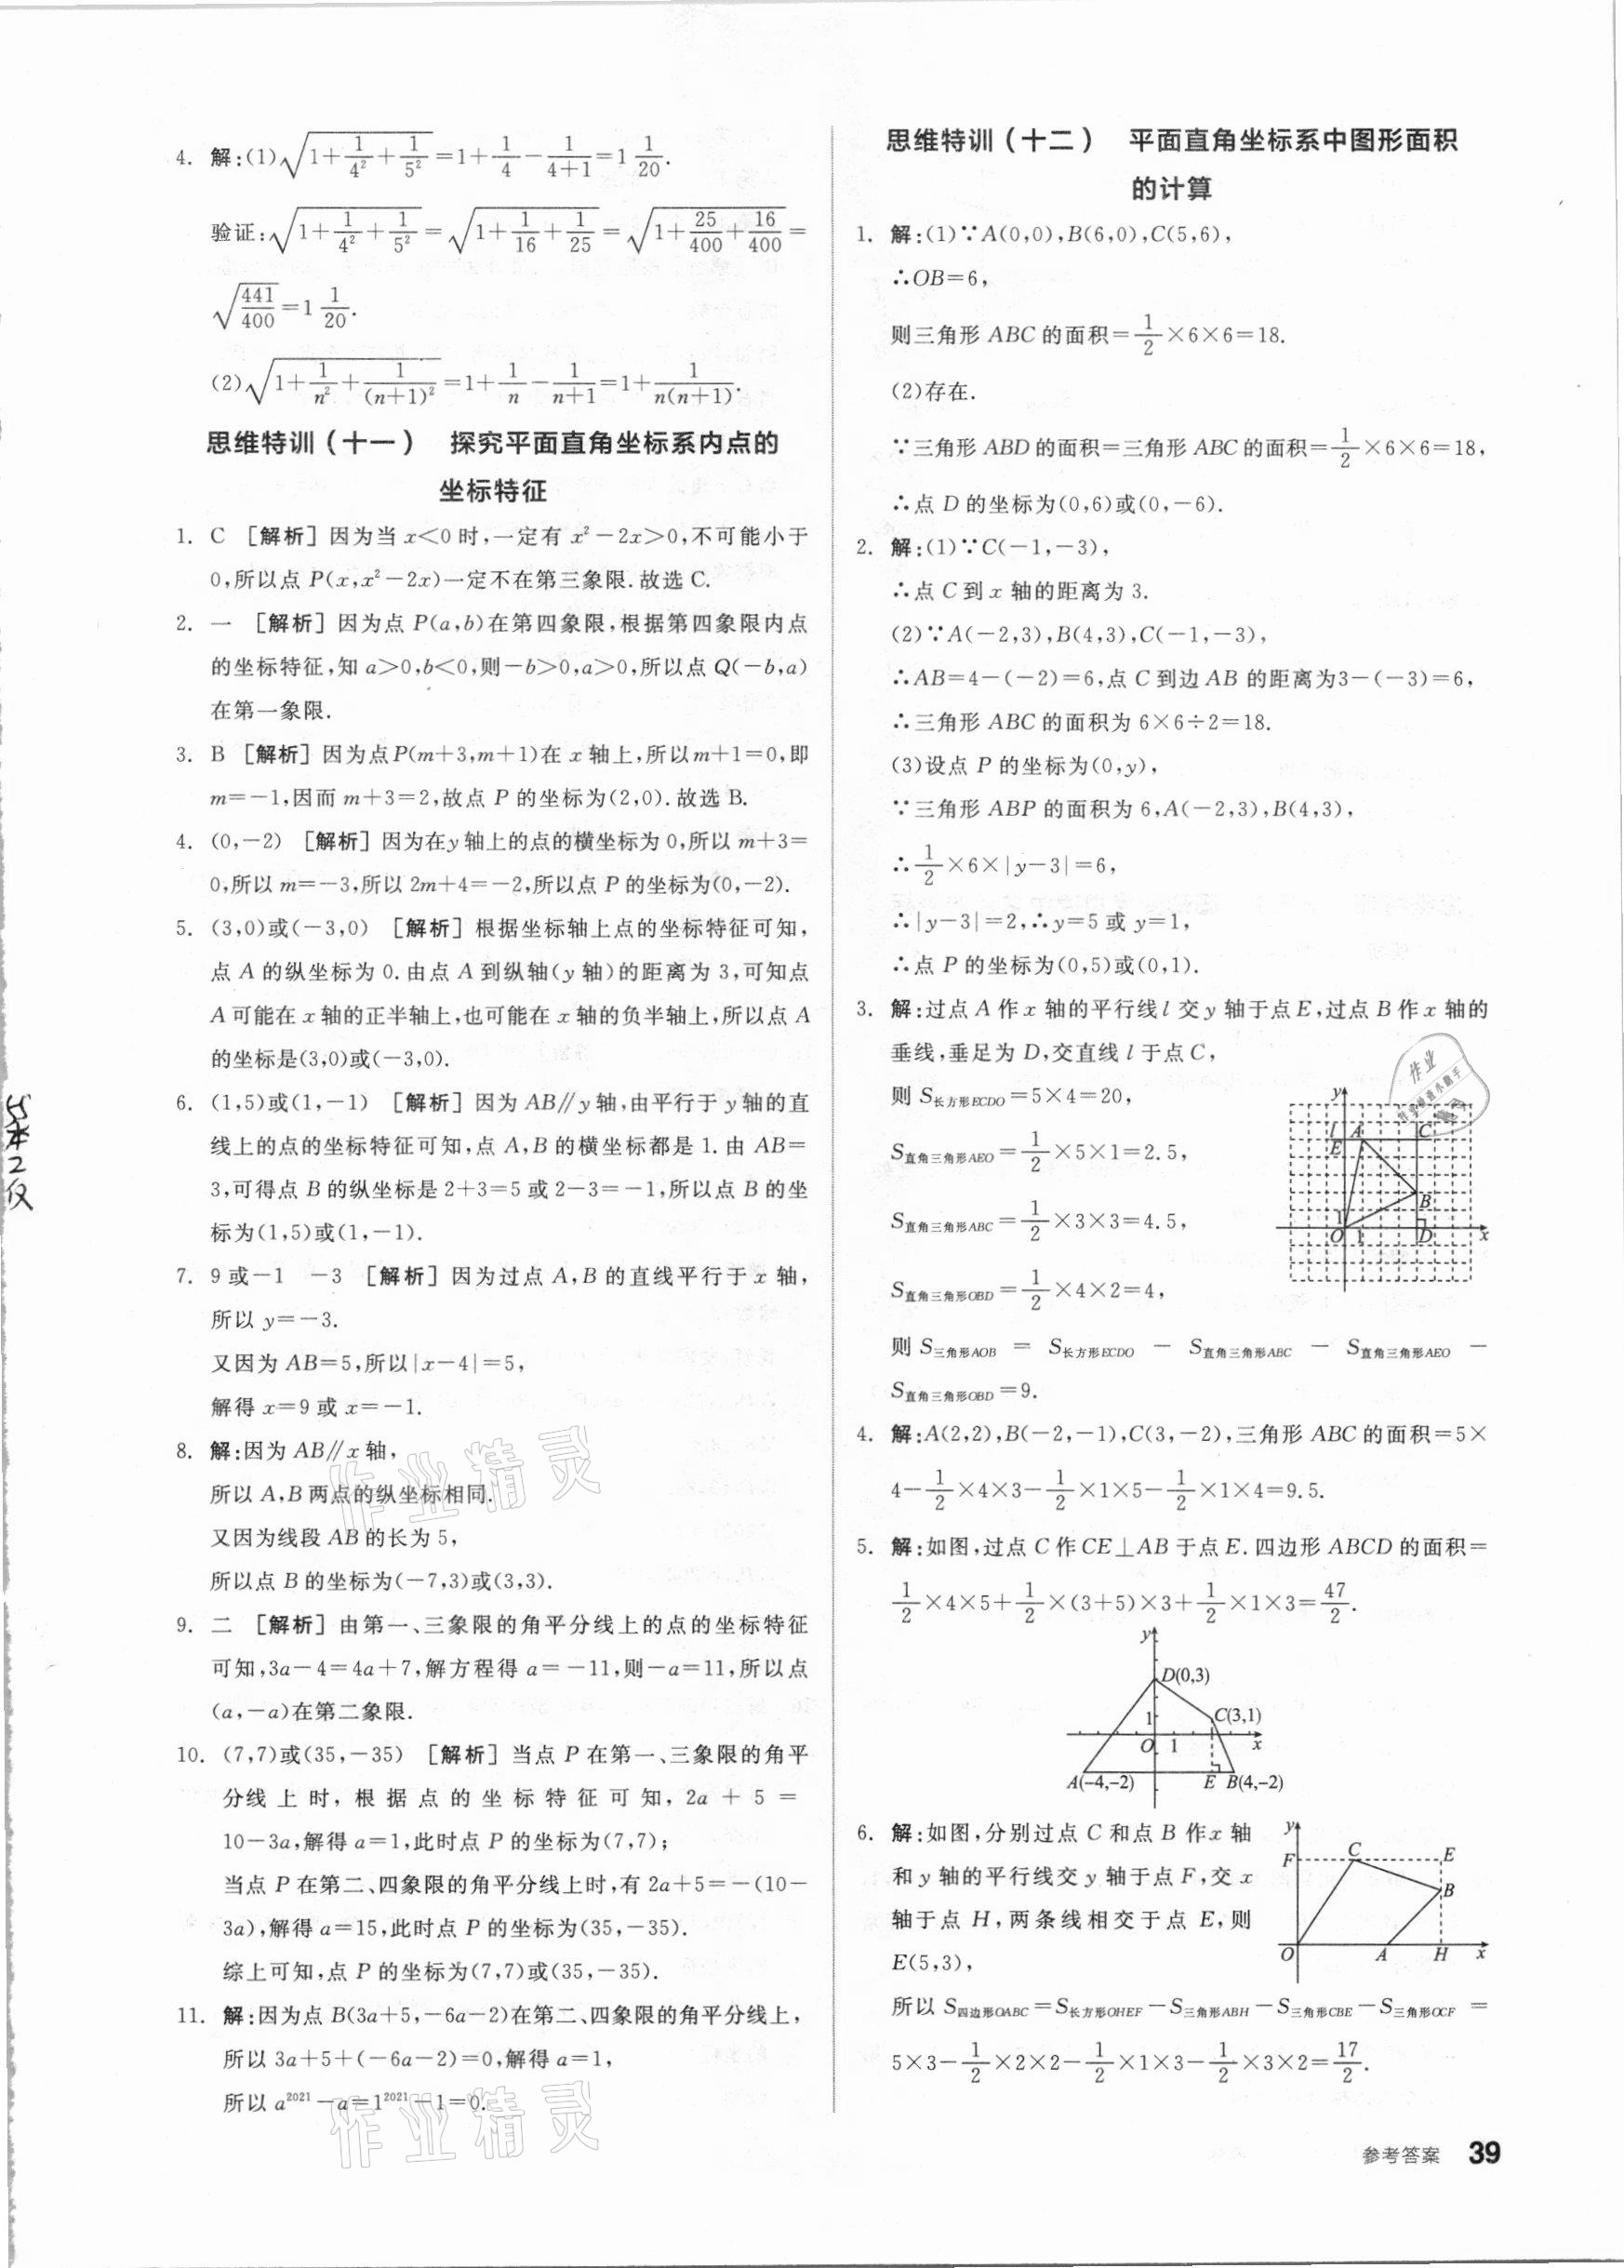 4. 解:(1)√(1+1/4²+1/5²)=1+1/4-1/(4+1)=1 1/20.
验证:√(1+1/4²+1/5²)=√(1+1/16+1/25)=√(1+25/400+16/400)=
√(441/400)=1 1/20.
(2)√(1+1/n²+1/(n+1)²)=1+1/n-1/(n+1)=1+1/n(n+1).
思维特训(十一) 探究平面直角坐标系内点的
坐标特征
1. C [解析]因为当x<0时,一定有x²-2x>0,不可能小于
0,所以点P(x,x²-2x)一定不在第三象限.故选C.
2. 一 [解析]因为点P(a,b)在第四象限,根据第四象限内点
的坐标特征,知a>0,b<0,则-b>0,a>0,所以点Q(-b,a)
在第一象限.
3. B [解析]因为点P(m+3,m+1)在x轴上,所以m+1=0,即
m=-1,因而m+3=2,故点P的坐标为(2,0).故选B.
4. (0,-2) [解析]因为在y轴上的点的横坐标为0,所以m+3=
0,所以m=-3,所以2m+4=-2,所以点P的坐标为(0,-2).
5. (3,0)或(-3,0) [解析]根据坐标轴上点的坐标特征可知,
点A的纵坐标为0.由点A到纵轴(y轴)的距离为3,可知点
A可能在x轴的正半轴上,也可能在x轴的负半轴上,所以点A
的坐标是(3,0)或(-3,0).
6. (1,5)或(1,-1) [解析]因为AB∥y轴,由平行于y轴的直
线上的点的坐标特征可知,点A,B的横坐标都是1.由AB=
3,可得点B的纵坐标是2+3=5或2-3=-1,所以点B的坐
标为(1,5)或(1,-1).
7. 9或-1 -3 [解析]因为过点A,B的直线平行于x轴,
所以y=-3.
又因为AB=5,所以|x-4|=5,
解得x=9或x=-1.
8. 解:因为AB∥x轴,
所以A,B两点的纵坐标相同.
又因为线段AB的长为5,
所以点B的坐标为(-7,3)或(3,3).
9. 二 [解析]由第一、三象限的角平分线上的点的坐标特征
可知,3a-4=4a+7,解方程得a=-11,则-a=11,所以点
(a,-a)在第二象限.
10. (7,7)或(35,-35) [解析]当点P在第一、三象限的角平
分线上时,根据点的坐标特征可知,2a+5=
10-3a,解得a=1,此时点P的坐标为(7,7);
当点P在第二、四象限的角平分线上时,有2a+5=-(10-
3a),解得a=15,此时点P的坐标为(35,-35).
综上可知,点P的坐标为(7,7)或(35,-35).
11. 解:因为点B(3a+5,-6a-2)在第二、四象限的角平分线上,
所以3a+5+(-6a-2)=0,解得a=1,
所以a²⁰²¹-a=1²⁰²¹-1=0.
作业精灵
作业精灵
思维特训(十二) 平面直角坐标系中图形面积
的计算
1. 解:(1)∵A(0,0),B(6,0),C(5,6),
∴OB=6,
则三角形ABC的面积=1/2×6×6=18.
(2)存在.
∵三角形ABD的面积=三角形ABC的面积=1/2×6×6=18,
∴点D的坐标为(0,6)或(0,-6).
2. 解:(1)∵C(-1,-3),
∴点C到x轴的距离为3.
(2)∵A(-2,3),B(4,3),C(-1,-3),
∴AB=4-(-2)=6,点C到边AB的距离为3-(-3)=6,
∴三角形ABC的面积为6×6÷2=18.
(3)设点P的坐标为(0,y),
∵三角形ABP的面积为6,A(-2,3),B(4,3),
∴1/2×6×|y-3|=6,
∴|y-3|=2,∴y=5或y=1,
∴点P的坐标为(0,5)或(0,1).
3. 解:过点A作x轴的平行线l交y轴于点E,过点B作x轴的
垂线,垂足为D,交直线l于点C,
则S长方形ECDO=5×4=20,
S直角三角形AEO=1/2×5×1=2.5,
S直角三角形ABC=1/2×3×3=4.5,
S直角三角形OBD=1/2×4×2=4,
y l A C E B 1 O 1 D x
则S三角形AOB=S长方形ECDO-S直角三角形ABC-S直角三角形AEO-
S直角三角形OBD=9.
4. 解:A(2,2),B(-2,-1),C(3,-2),三角形ABC的面积=5×
4-1/2×4×3-1/2×1×5-1/2×1×4=9.5.
5. 解:如图,过点C作CE⊥AB于点E.四边形ABCD的面积=
1/2×4×5+1/2×(3+5)×3+1/2×1×3=47/2.
y
D(0,3)
1 C(3,1)
O 1 x
A(-4,-2) E B(4,-2)
6. 解:如图,分别过点C和点B作x轴
和y轴的平行线交y轴于点F,交x
轴于点H,两条线相交于点E,则
E(5,3),
y F C E B O A H x
所以S四边形OABC=S长方形OHEF-S三角形ABH-S三角形CBE-S三角形OCF=
5×3-1/2×2×2-1/2×1×3-1/2×3×2=17/2.
参考答案 39